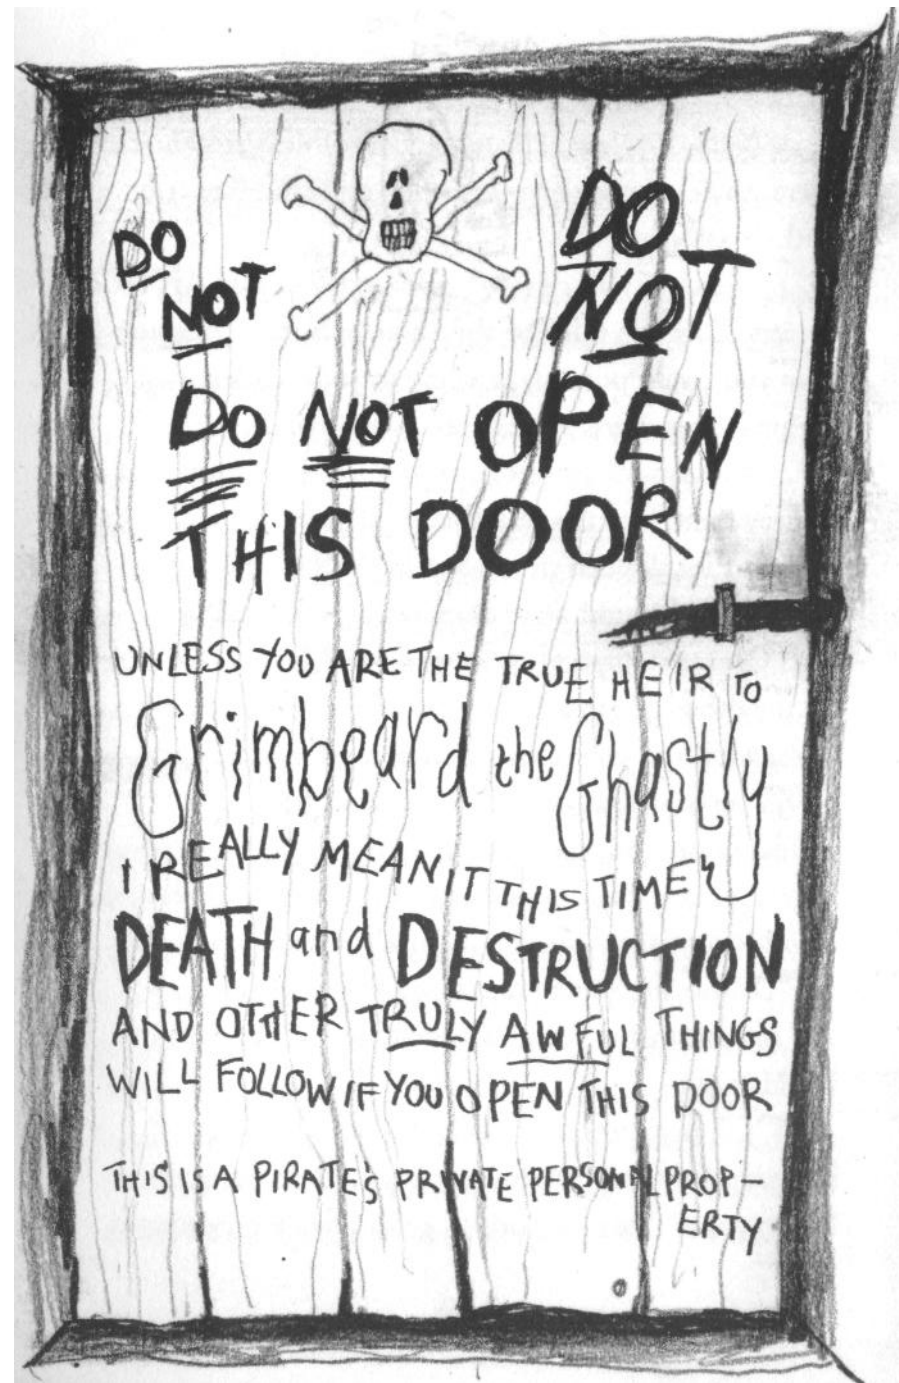 DO
NOT
DO
NOT
DO NOT OPEN
THIS DOOR
UNLESS YOU ARE THE TRUE HEIR TO
Grimbeard the Ghastly
I REALLY MEAN IT THIS TIME
DEATH and DESTRUCTION
AND OTHER TRULY AWFUL THINGS
WILL FOLLOW IF YOU OPEN THIS DOOR
THIS IS A PIRATE'S PRIVATE PERSONAL PROP-
ERTY